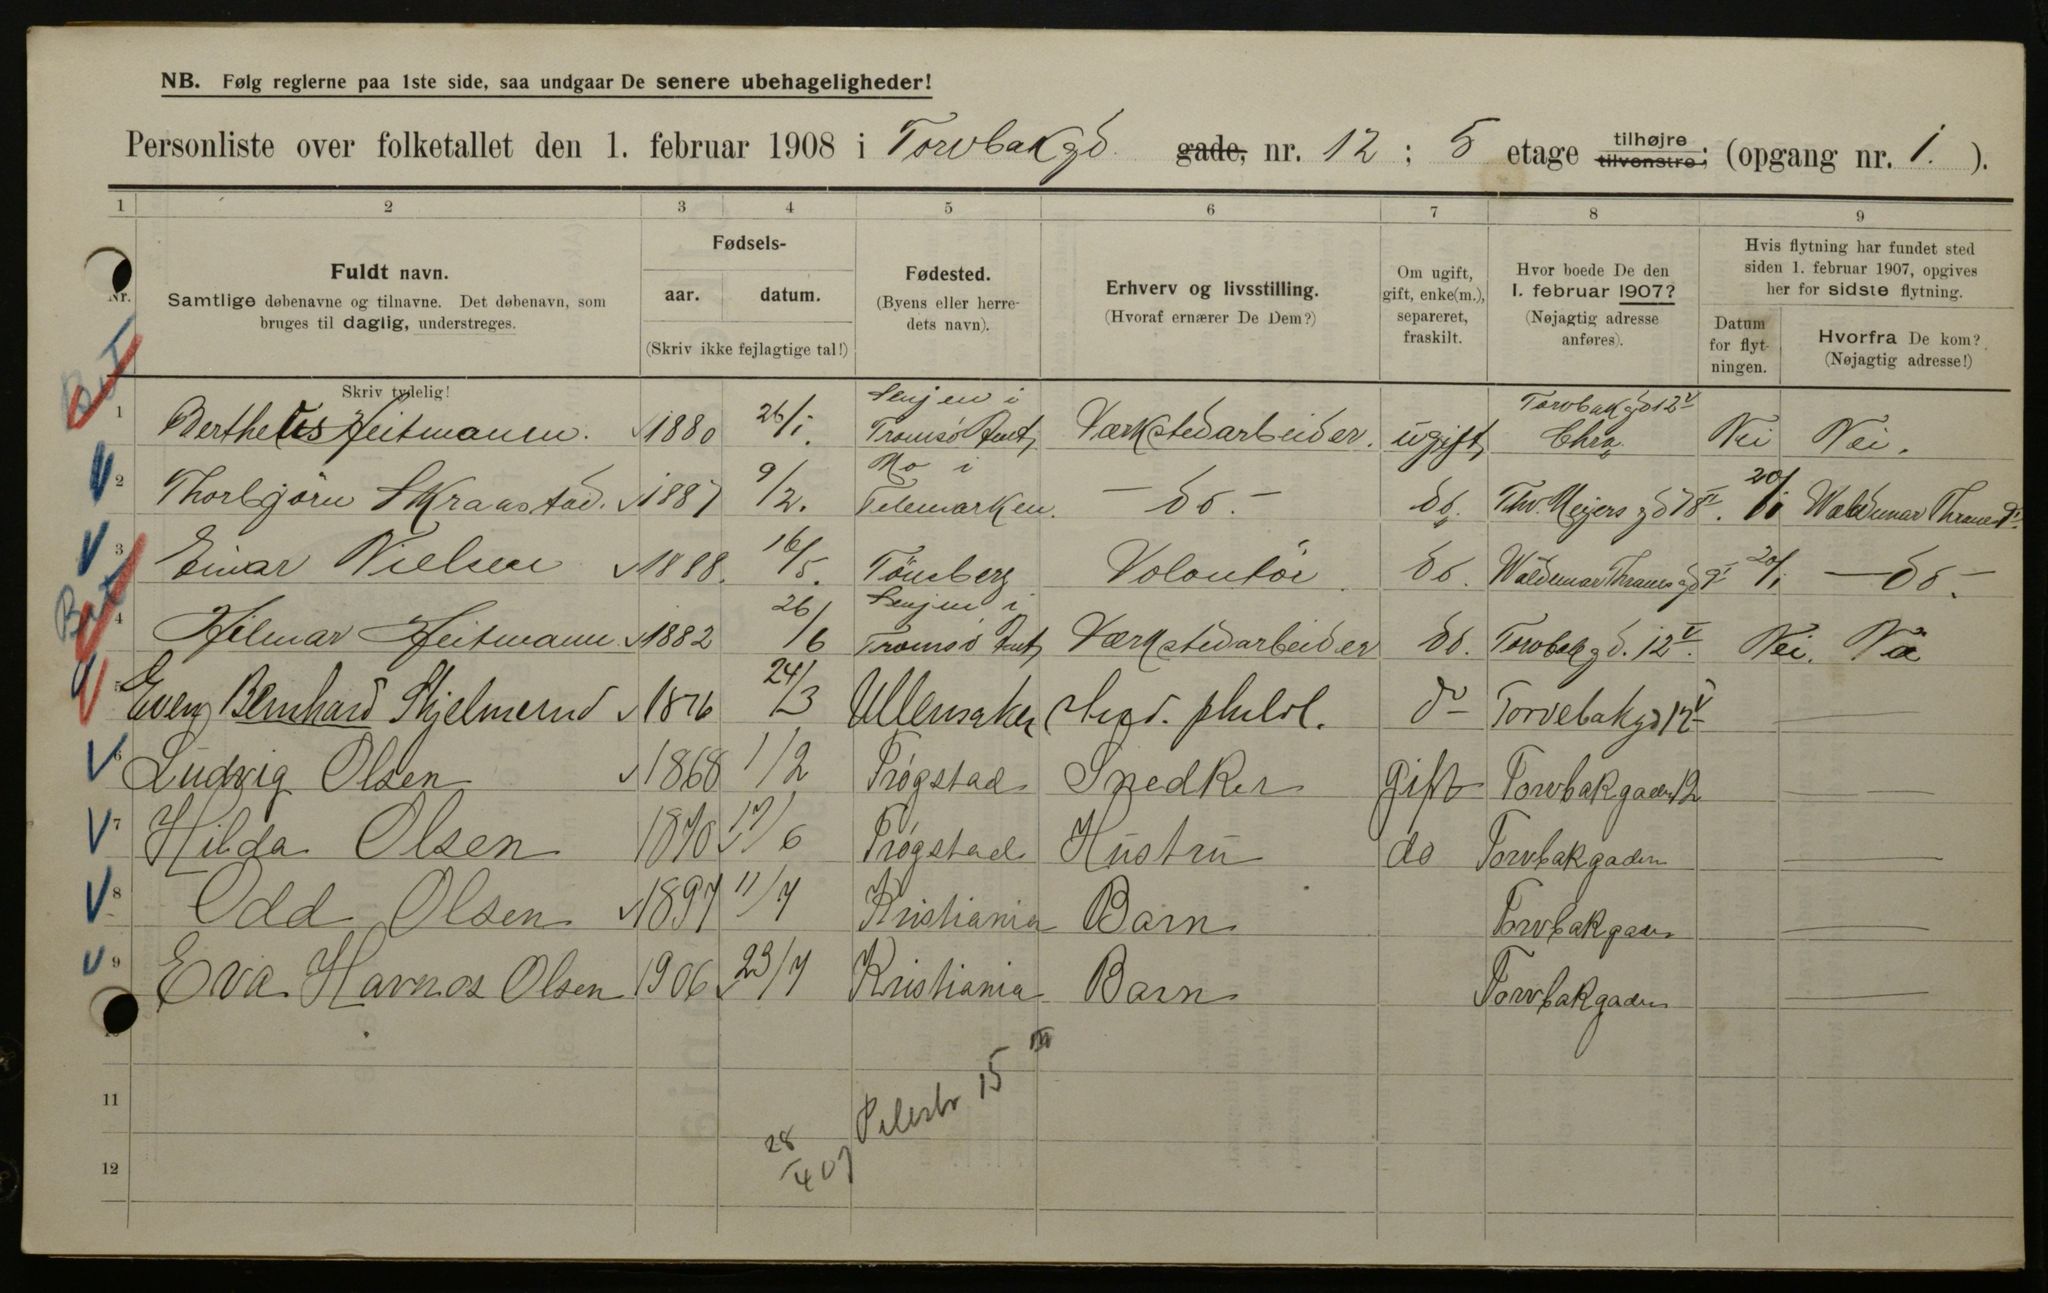 NB. Følg reglerne paa 1ste side, saa undgaar De senere ubehageligheder!
Personliste over folketallet den 1. februar 1908 i Torvbakgd gade, nr. 12 ; 5 etage tilhøjre tilvenstre; (opgang nr. 1. ).
1 2 3 4 5 6 7 8 9
Nr.
Fuldt navn.
Samtlige døbenavne og tilnavne. Det døbenavn, som
bruges til daglig, understreges.
Fødsels-
aar. datum.
(Skriv ikke fejlagtige tal!)
Fødested.
(Byens eller herre-
dets navn).
Erhverv og livsstilling.
(Hvoraf ernærer De Dem?)
Om ugift,
gift, enke(m.),
separeret,
fraskilt.
Hvor boede De den
1. februar 1907?
(Nøjagtig adresse
anføres).
Hvis flytning har fundet sted
siden 1. februar 1907, opgives
her for sidste flytning.
Datum
for flyt-
ningen.
Hvorfra De kom?
(Nøjagtig adresse!)
Skriv tydelig!
1 Bertheus Heitmann. 1880 26/1. Senjen i Tromsø Amt, Værkstedarbeider. ugift, Torvbakgd 12 V Chra Nei Nei.
2 Thorbjörn Skraastad. 1887 9/2. Mo i Telemarken. - do - do. Thv. Meyers gd 78 II. 20/1 Waldemar Thranesgd
3 Einar Nielsen 1888. 16/5. Tönsberg Volontör do. Waldemar Thranesgd 9 I 20/1 - do -.
4 Hilmar Heitmann 1882 26/6 Senjen i Tromsø Amt, Værkstedarbeider do. Torvbakgd. 12 V. Nei. Nei
5 Even Bernhard Skjelmerud 1876 24/3 Ullensaker Stud. philol. do Torvebakgd 12 V
6 Ludvig Olsen 1868 1/2 Trøgstad Snedker gift Torvbakgaden 12
7 Hilda Olsen 1870 17/6 Trøgstad Hustru do Torvbakgaden
8 Odd Olsen 1897 11/7 Kristiania Barn Torvbakgaden
9 Eva Havnos Olsen 1906 23/7 Kristiania Barn Torvbakgaden
10
11
12
Pilestr 15 III
28/4 07